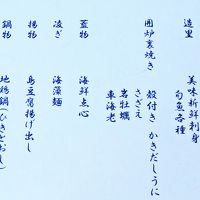 造里
美味祈鮮刺身
旬魚各種
囲炉裏焼き
殻付き かきだしうに
さざえ
岩牡蠣
車海老
蓋物
海鮮点心
凌ぎ
海藻麺
揚物
島豆腐揚げ出し
鍋物
地鶏鍋(ひきとおし)